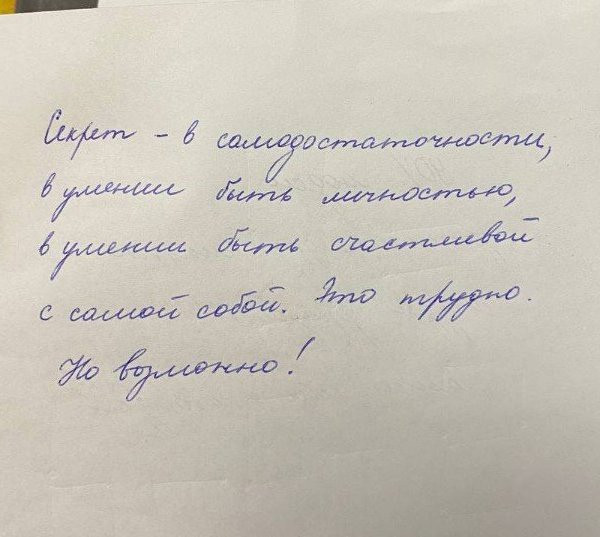 Секрет - в самодостаточности,
в умении быть личностью,
в умении быть счастливой
с самой собой. Это трудно.
Но возможно!